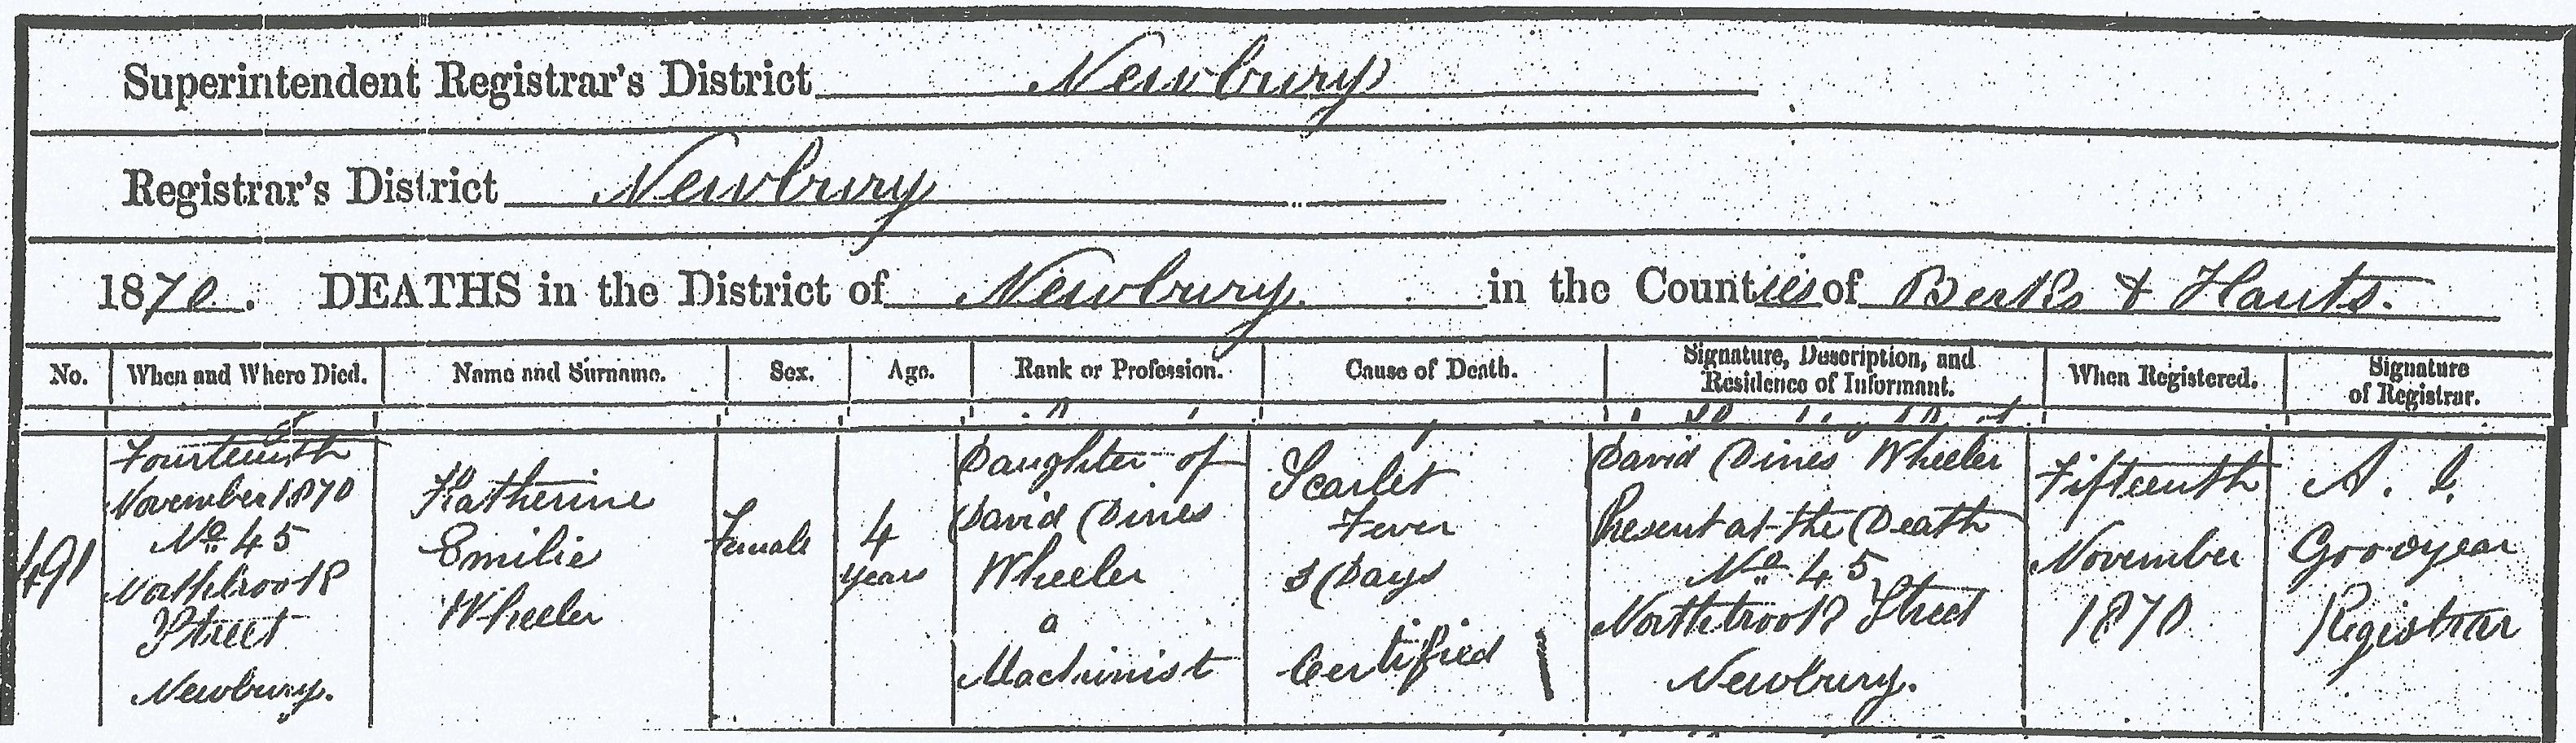 Superintendent Registrar's District Newbury
Registrar's District Newbury
1870. DEATHS in the District of Newbury. in the Counties of Berks & Hants.
No.
When and Where Died.
Name and Surname.
Sex.
Age.
Rank or Profession.
Cause of Death.
Signature, Description, and
Residence of Informant.
When Registered.
Signature
of Registrar.
491
Fourteenth
November 1870
No 45
Northbrook
Street
Newbury.
Katherine
Emilie
Wheeler
Female
4
years
Daughter of
David Dines
Wheeler
a
Machinist
Scarlet
Fever
3 Days
Certified
David Dines Wheeler
Present at the Death
No 45
Northbrook Street
Newbury.
Fifteenth
November
1870
A. I.
Goodyear
Registrar